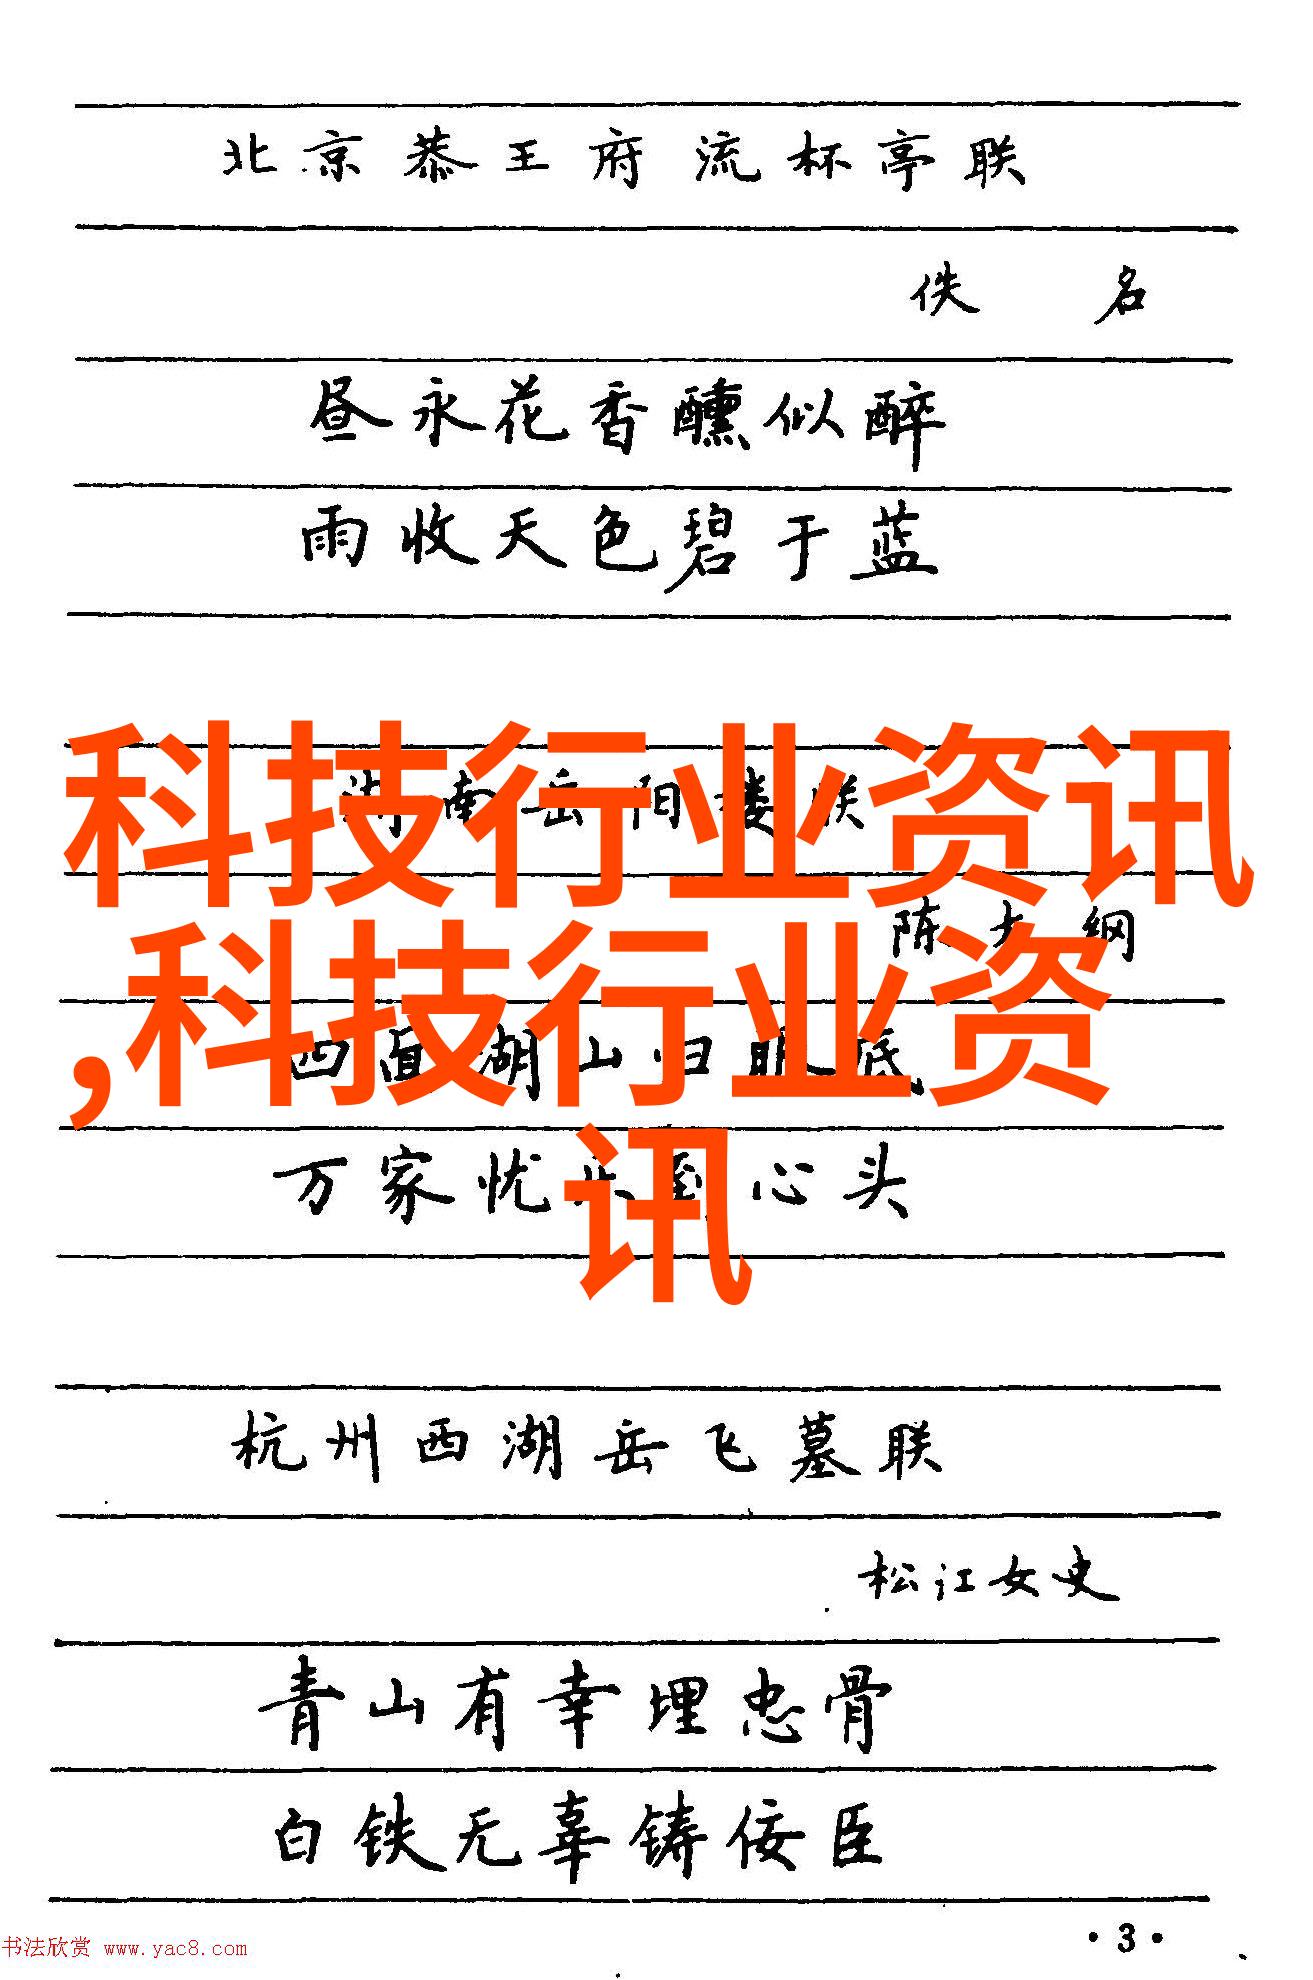 北京恭王府流杯亭联
佚名
昼永花香醺似醉
雨收天色碧于蓝
科技行业资讯
湖南岳阳楼联
陈大纲
,科技行业资
四面湖山归眼底
万家忧乐到心头
讯
杭州西湖岳飞墓联
松江女史
青山有幸埋忠骨
白铁无辜铸佞臣
·3·
书法欣赏 www.yac8.com